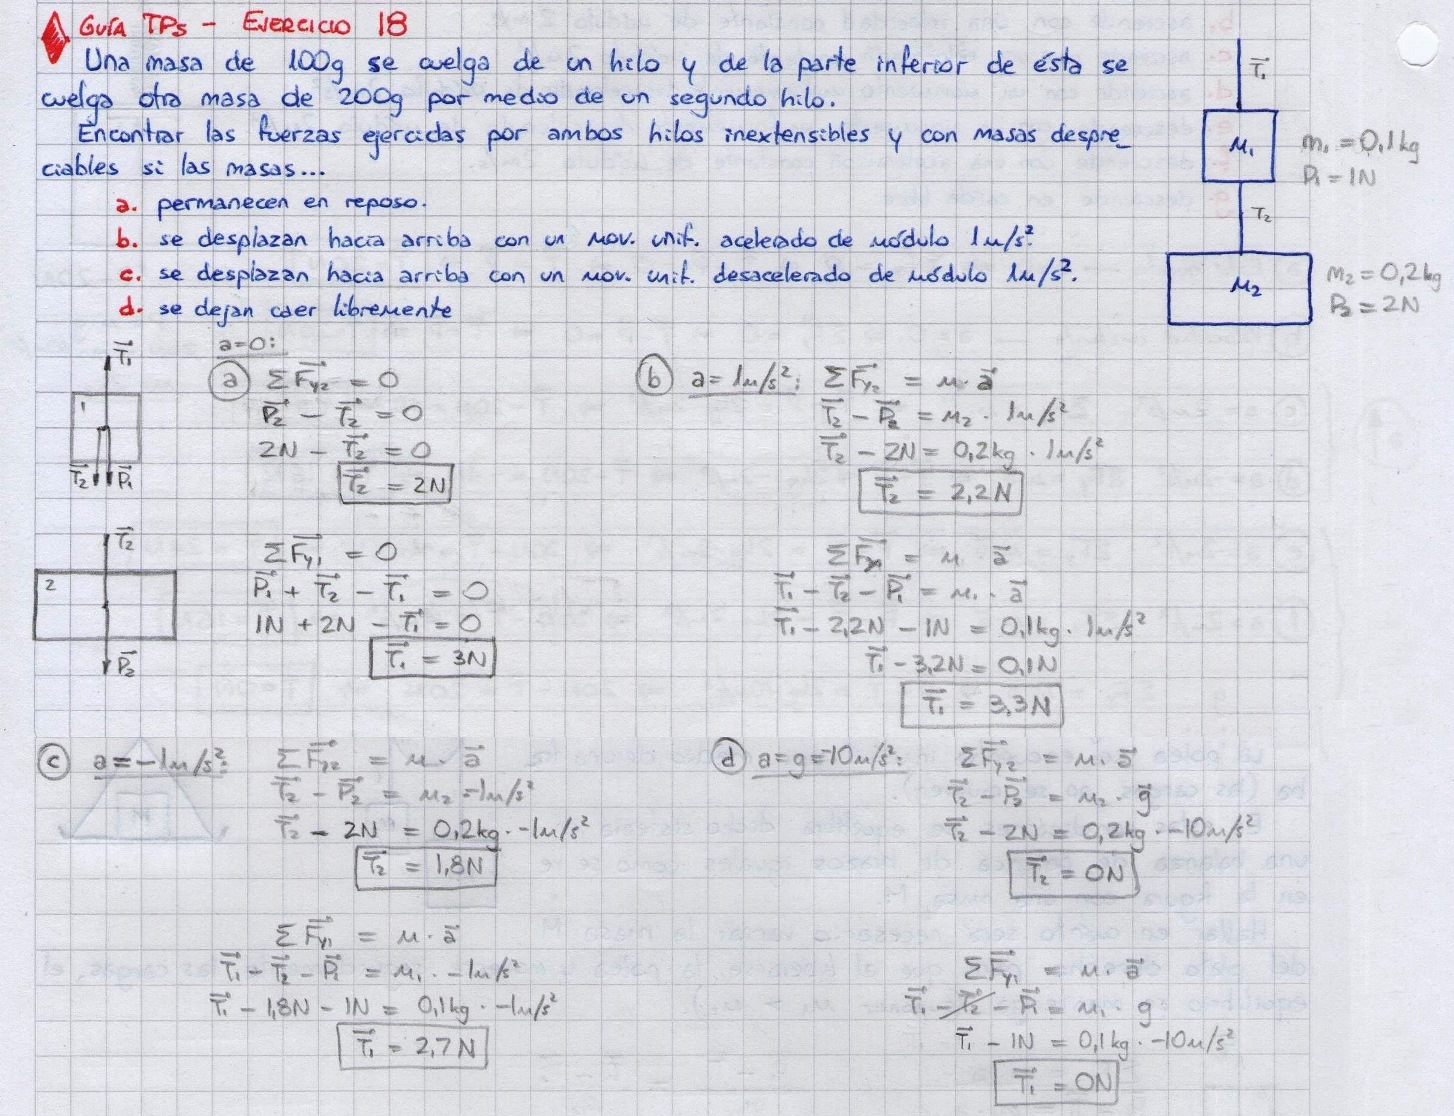 GUÍA TPs - EJERCICIO 18
Una masa de 100g se cuelga de un hilo y de la parte inferior de ésta se
cuelga otra masa de 200g por medio de un segundo hilo.
Encontrar las fuerzas ejercidas por ambos hilos inextensibles y con masas despre_
ciables si las masas...
a. permanecen en reposo.
b. se desplazan hacia arriba con un mov. unif. acelerado de módulo 1m/s².
c. se desplazan hacia arriba con un mov. unif. desacelerado de módulo 1m/s².
d. se dejan caer libremente
T⃗₁
M₁
m₁ = 0,1kg
P₁ = 1N
T₂
M₂
m₂ = 0,2kg
P₂ = 2N
T⃗₁
1
T⃗₂ P⃗₁
T⃗₂
2
P⃗₂
a=0:
a ΣF⃗y₂ = 0
P⃗₂ - T⃗₂ = 0
2N - T⃗₂ = 0
T⃗₂ = 2N
ΣF⃗y₁ = 0
P⃗₁ + T⃗₂ - T⃗₁ = 0
1N + 2N - T⃗₁ = 0
T⃗₁ = 3N
b a = 1m/s²: ΣF⃗y₂ = m · a⃗
T⃗₂ - P⃗₂ = m₂ · 1m/s²
T⃗₂ - 2N = 0,2kg · 1m/s²
T⃗₂ = 2,2N
ΣF⃗y₁ = m · a⃗
T⃗₁ - T⃗₂ - P⃗₁ = m₁ · a⃗
T⃗₁ - 2,2N - 1N = 0,1kg · 1m/s²
T⃗₁ - 3,2N = 0,1N
T⃗₁ = 3,3N
c a = -1m/s²: ΣF⃗y₂ = m · a⃗
T⃗₂ - P⃗₂ = m₂ · -1m/s²
T⃗₂ - 2N = 0,2kg · -1m/s²
T⃗₂ = 1,8N
ΣF⃗y₁ = m · a⃗
T⃗₁ - T⃗₂ - P⃗₁ = m₁ · -1m/s²
T⃗₁ - 1,8N - 1N = 0,1kg · -1m/s²
T⃗₁ = 2,7N
d a=g=-10m/s²: ΣF⃗y₂ = m · a⃗
T⃗₂ - P⃗₂ = m₂ · g⃗
T⃗₂ - 2N = 0,2kg · -10m/s²
T⃗₂ = 0N
ΣF⃗y₁ = m · a⃗
T⃗₁ - T⃗₂ - P⃗₁ = m₁ · g
T⃗₁ - 1N = 0,1kg · -10m/s²
T⃗₁ = 0N